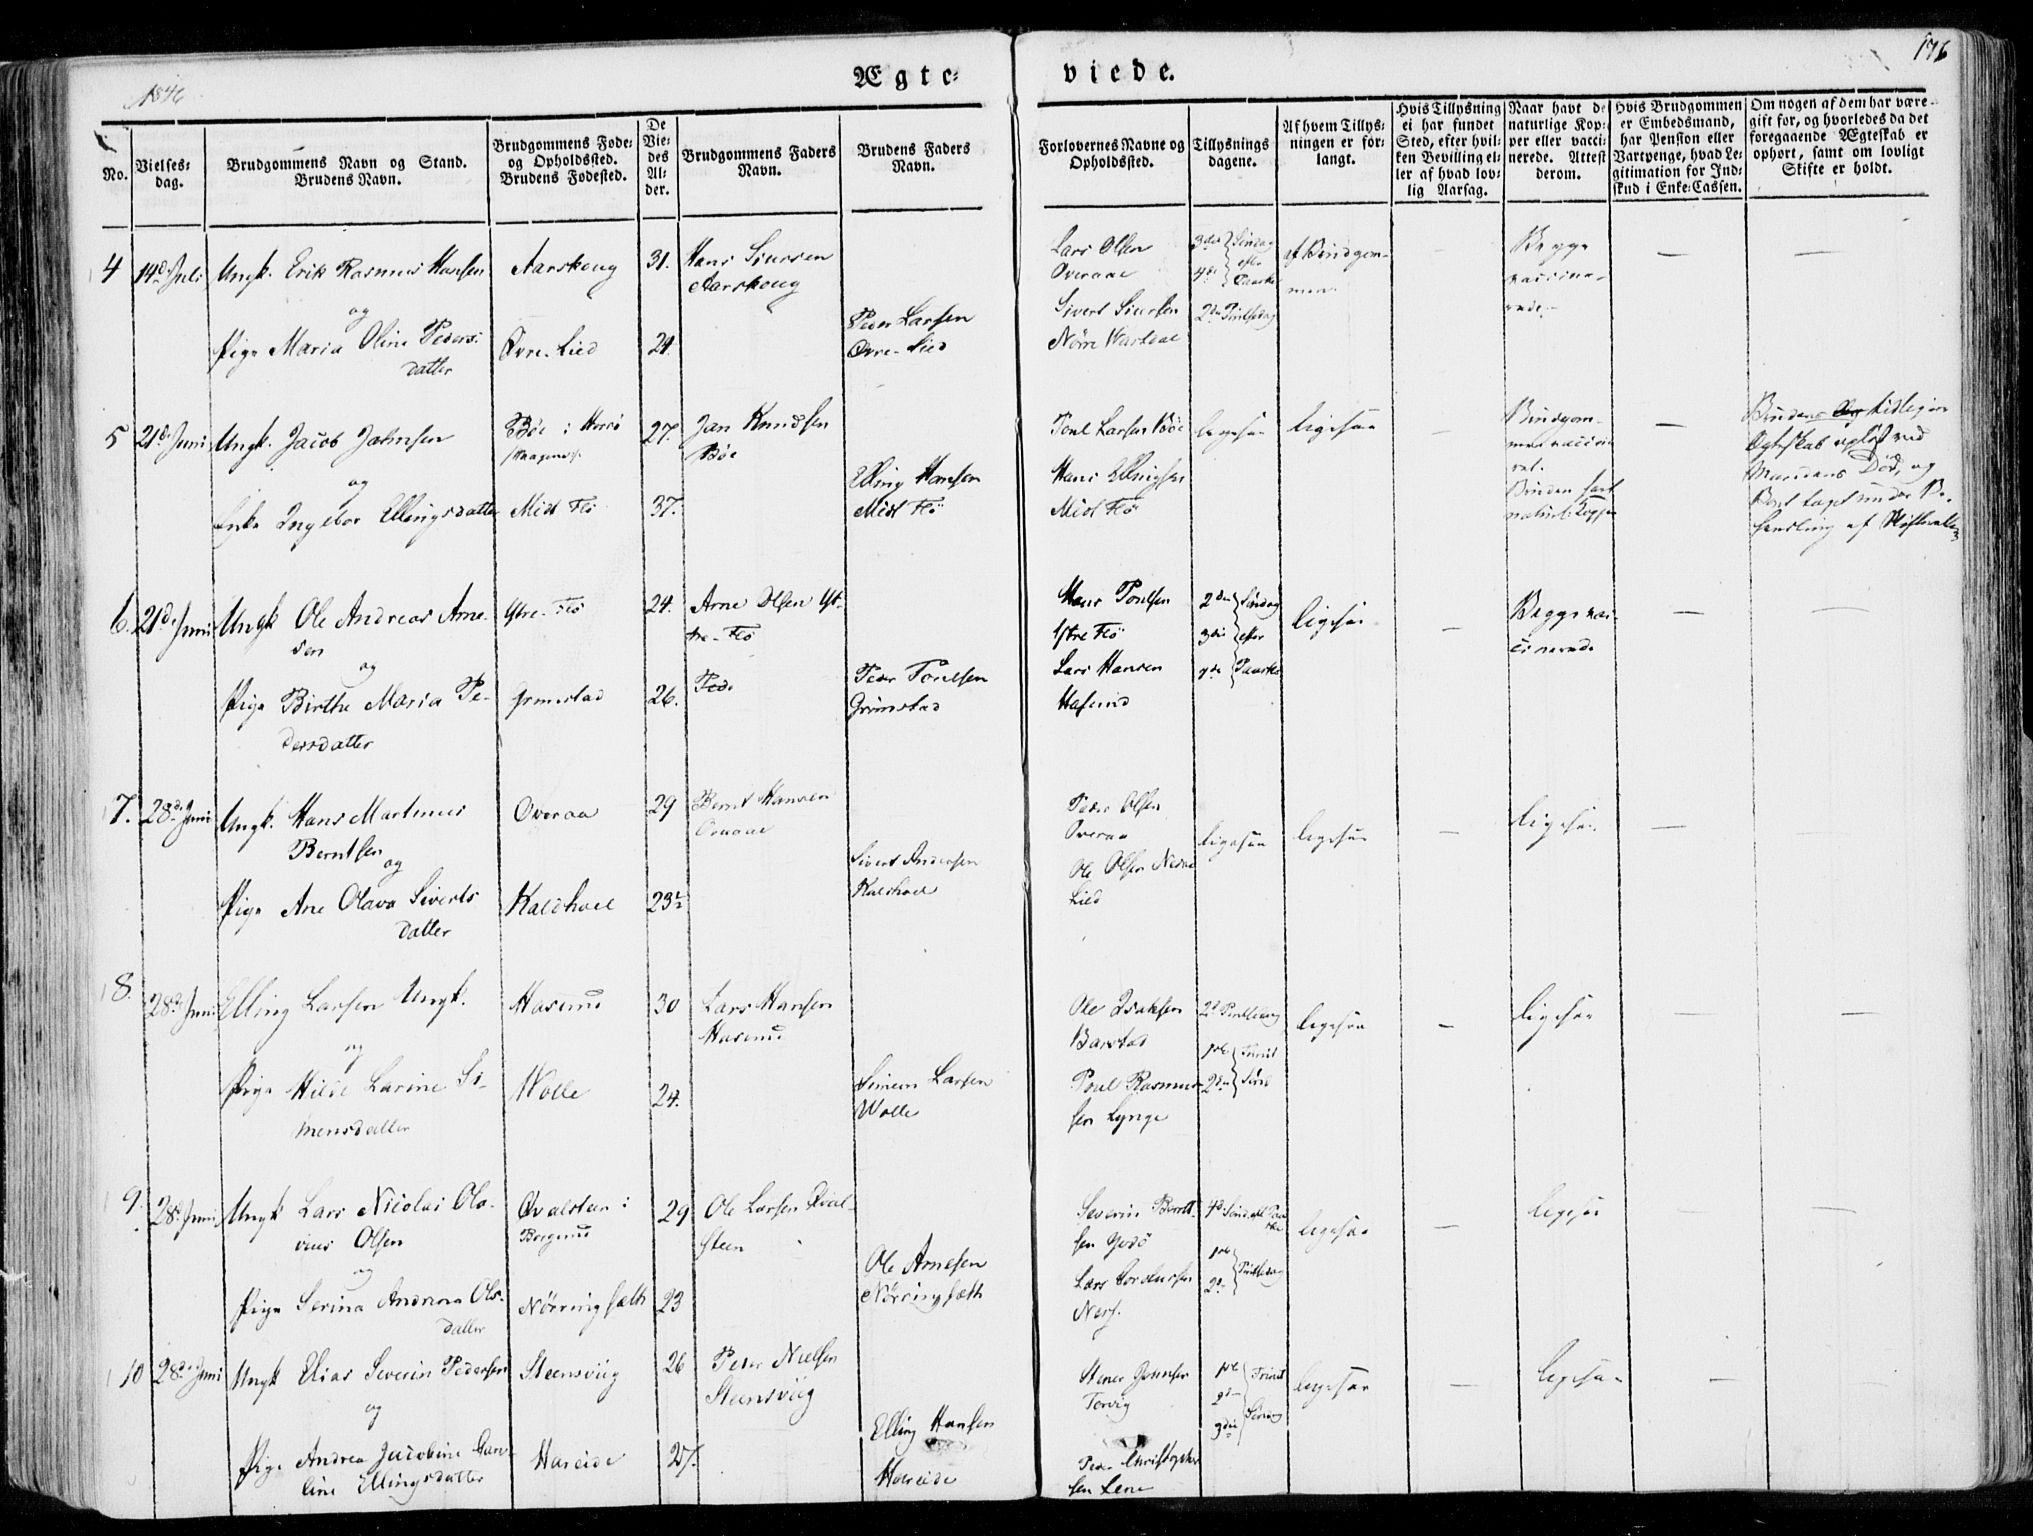 1846
Ægte-
viede.
176
No.
Vielses-
dag.
Brudgommens Navn og Stand.
Brudens Navn.
Brudgommens Føde-
og Opholdssted.
Brudens Fødested.
De
Vie-
des
Al-
der.
Brudgommens Faders
Navn.
Brudens Faders
Navn.
Forlovernes Navne og
Opholdssted.
Tillysnings
dagene.
Af hvem Tillys-
ningen er for-
langt.
Hvis Tillysning
ei har fundet
Sted, efter hvil-
ken Bevilling el-
ler af hvad lov-
lig Aarsag.
Naar havt de
naturlige Kop-
per eller vacci-
nerede. Attest
derom.
Hvis Brudgommen
er Embedsmand,
har Pension eller
Vartpenge, hvad Le-
gitimation for Ind-
skud i Enke-Cassen.
Om nogen af dem har være-
gift for, og hvorledes da det
foregaaende Ægteskab er
ophørt, samt om lovligt
Skifte er holdt.
4
14d Juli
Ungk. Erik Rasmus Hansen
og
Pige Maria Oline Peders-
datter
Aarskoug
Øvre-Lied
31.
24.
Hans Siursen
Aarskoug
Peder Larsen
Øvre-Lied
Lars Olsen
Overaae
Sivert Siursen
Nørre Vartdal
3die Søndag
4de efter Paaske
2den Pintsedag
af Brudgom-
men.
Begge
vaccine-
rede.
5
21d Juni
Ungk. Jacob Jahnsen
og
Enke Ingebor Ellingsdatter
Bøe i Herrö
Midt Flö
27.
37.
Jan Knudsen
Bøe
Elling Hansen
Midt Flö
Poul Larsen Bøe
Hans Ellingsen
Midt Flö
ligesaa
ligesaa
Brudgom-
men vacci-
ret.
Bruden havt
naturl: Kopper
Brudens tidligere
Ægteskab opløst ved
Mandens Död, og
Boet taget under Be-
handling af Skifteretten
6.
21d Juni
Ungk Ole Andreas Arne-
sen
og
Pige Birthe Maria Pe-
dersdatter
Ytre-Flö
Grimstad
24.
26.
Arne Olsen Yt-
tre-Flö
Pede
Peder Poulsen
Grimstad
Hans Poulsen
Ytre Flö
Lars Hansen
Hasund
2den Søndag
3die efter
4de Paaske
ligesaa
Begge vac-
cinerede
7.
28d Juni
Ungk. Hans Martinus
Berntsen
og
Pige Ane Olava Siverts
datter
Overaa
Kaldhoel
29
23½
Bernt Hansen
Overaae
Sivert Andersen
Kaldhoel
Peder Olsen
Overaa
Ole Olsen Nedre
Lied
ligesaa
ligesaa
ligesaa
8.
28d Juni
Elling Larsen Ungk.
og
Pige Hilde Larine Si-
mensdatter
Hasund
Wolle
30
24.
Lars Hansen
Hasund
Simen Larsen
Wolle
Ole Isaksen
Barstad
Poul Rasmus-
sen Lynge
2d Pintsedag
1ste Trinit
2den Sönd
ligesaa
ligesaa
9.
28d Juni
Ungk Lars Nicolai Ola-
vius Olsen
og
Pige Serina Andrina Ols-
datter
Qvalsteen i
Borgund
Nörringsæth
29
23
Ole Larsen Qval-
steen
Ole Arnesen
Nörringsæth
Severin Berntt-
sen Godö
Lars
4d Sönd. eft Paaske
1ste
2d Pintsedag
ligesaa
ligesaa
10
28d Juni
Ungk Elias Severin Pedersen
og
Pige Andrea Jacobine Caro-
line Ellingsdatter
Steensviig
Hareide
26
27.
Peder Nielsen
Steensviig
Elling Hansen
Hareide
Stener Jonsen
Torvig
Peder Christopher
sen Lene
1ste Trinit
2d
3die Søndag
ligesaa
ligesaa